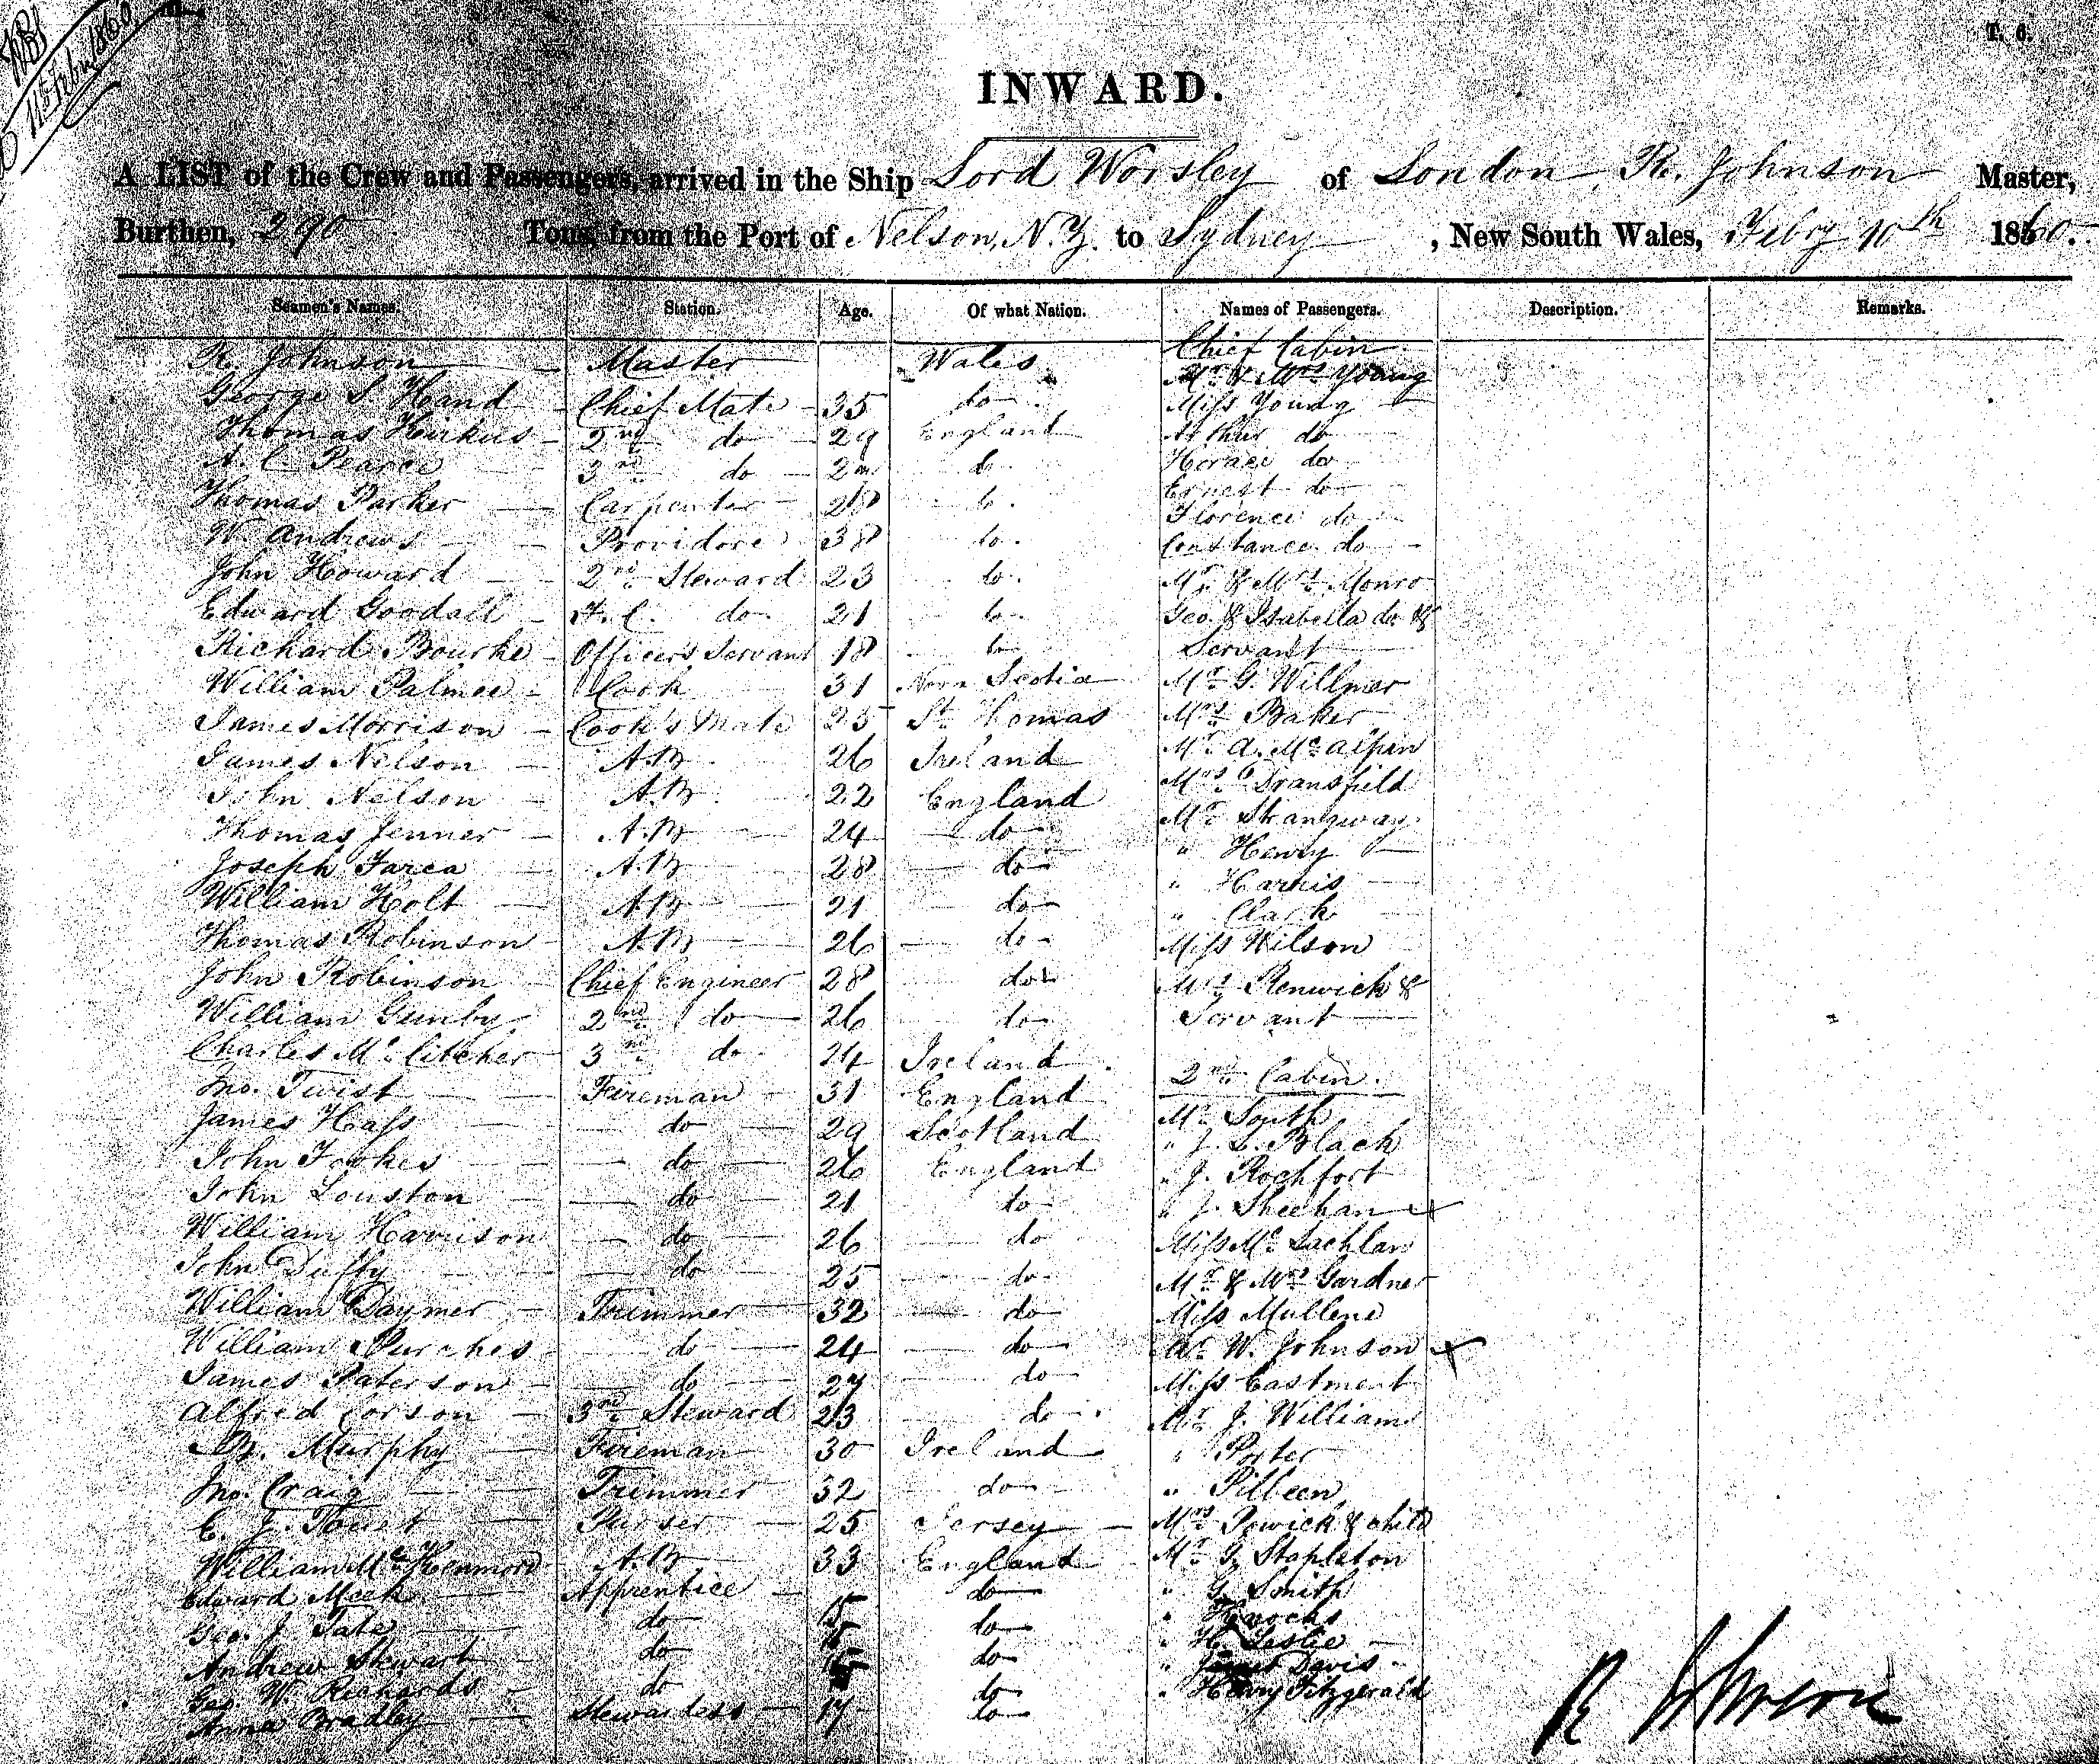 11th Feby 1860
T. 6.
INWARD.
A LIST of the Crew and Passengers, arrived in the Ship Lord Worsley of London, R. Johnson Master,
Burthen, 290 Tons, from the Port of Nelson, N.Z. to Sydney, New South Wales, Feby 10th 1860.
Seamen's Names. Station. Age. Of what Nation. Names of Passengers. Description. Remarks.
R. Johnson Master Wales Chief Cabin
Mr & Mrs Young
George S Hand Chief Mate 35 do Miss Young
Thomas 2nd do 29 England Arthur do
A. C. Pearce 3rd do do Horace do
Ernest do
Thomas Parker Carpenter 28 do Florence do
W. Andrews Providore 38 do Constance do
John Howard 2nd Steward 23 do Mr & Mrs Monro
Edward Goodall F. C. do 21 do Geo. & Isabella do &
Richard Bourke Officers Servant 18 do Servant
William Palmer Cook 31 Nova Scotia Mr G. Willmer
James Morrison Cook's Mate 25 St Thomas Mrs Baker
James Nelson A.B 26 Ireland Mr A. McAlpin
John Nelson A.B. 22 England Mrs Dransfield
Thomas Jenner A.B 24 do Mr Strangway
Joseph Farea A.B 28 do " Henry
" Harris
William Holt A.B 21 do " Clark
Thomas Robinson A.B 26 do Miss Wilson
John Robinson Chief Engineer 28 do Mrs Renwick &
William Gunby 2nd do 26 do Servant
Charles McCitcher 3rd do 24 Ireland
2nd Cabin.
Jno. Twist Fireman 31 England Mr South
James Hass do 29 Scotland " J. L. Black
John Fookes do 26 England " J. Rochfort
John Louston do 21 do " J. Sheehan
William Harrison do 26 do Miss McLachlan
John Duffy do 25 do Mr & Mrs Gardner
William Daymer Trimmer 32 do Miss Mullene
William Purches do 24 do Mr W. Johnson
James Paterson do 27 do Miss Eastment
Alfred Corson 3rd Steward 23 do Mr J. William
B. Murphy Fireman 30 Ireland " Porter
Jno. Craig Trimmer 32 do " Pilbeen
E. J. Purser 25 Jersey Mrs Powick & child
William A.B 33 England Mr G. Stapleton
Edward Meek Apprentice 15 do " G. Smith
Geo. J. Tate do do " Knocks
" H. Leslie
Andrew Stewart do do " Davis
Geo. W. Richards do do " Henry Fitzgerald
Anna Bradley Stewardess 17 do
R Johnson